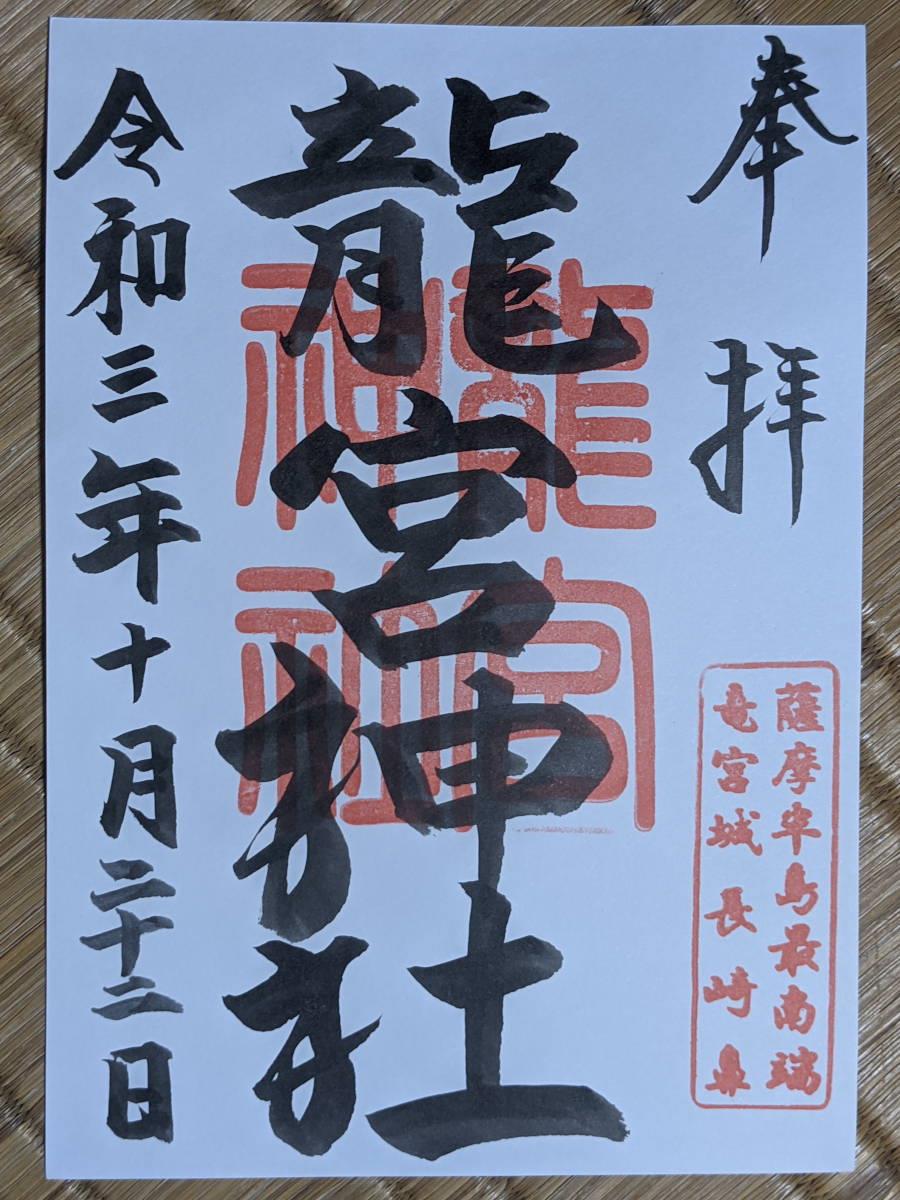 奉拝
薩摩半島最南端
竜宮城長崎鼻
龍宮神社
龍宮
神社
令和三年十月二十二日